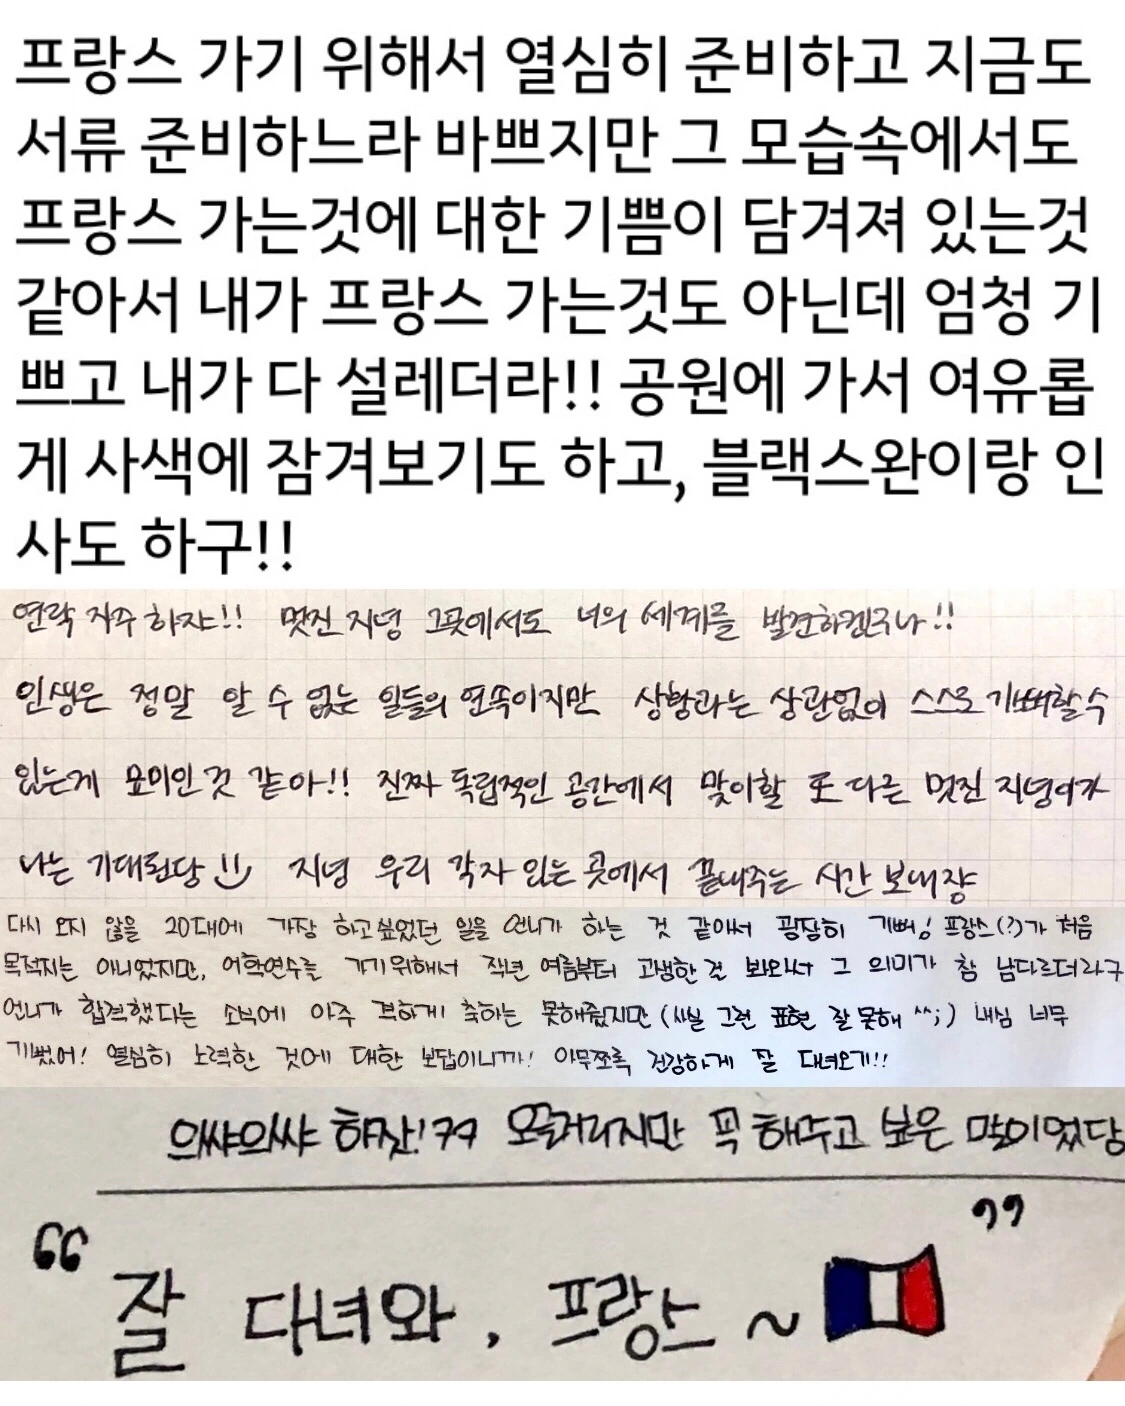 프랑스 가기 위해서 열심히 준비하고 지금도
서류 준비하느라 바쁘지만 그 모습속에서도
프랑스 가는것에 대한 기쁨이 담겨져 있는것
같아서 내가 프랑스 가는것도 아닌데 엄청 기
쁘고 내가 다 설레더라!! 공원에 가서 여유롭
게 사색에 잠겨보기도 하고, 블랙스완이랑 인
사도 하구!!
연락 자주 하쟈!! 멋진 지녕 그곳에서도 너의 세계를 발견하겠구나!!
인생은 정말 알 수 없는 일들의 연속이지만 상황과는 상관없이 스스로 기뻐할 수
있는게 묘미인 것 같아!! 진짜 독립적인 공간에서 맞이할 또 다른 멋진 지녕이가
나는 기대된당 지녕 우리 각자 있는 곳에서 끝내주는 시간 보내쟝
다시 오지 않을 20대에 가장 하고싶었던 일을 언니가 하는 것 같아서 굉장히 기뻐! 프랑스(?)가 처음
목적지는 아니었지만, 어학연수를 가기위해서 작년 여름부터 고생한걸 봐와서 그 의미가 참 남다르더라구
언니가 합격했다는 소식에 아주 격하게 축하는 못해줬지만 (사실 그런 표현 잘 못해 ^^;) 내심 너무
기뻤어! 열심히 노력한 것에 대한 보답이니까! 아무쪼록 건강하게 잘 다녀오기!!
의쌰의쌰 하쟛! ㅋㅋ 오글거리지만 꼭 해주고 싶은 말이었당
“ 잘 다녀와, 프랑스 ~ ”